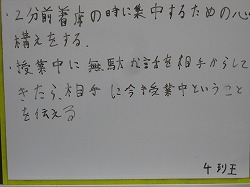 ・2分前着席の時に集中するための心
構えをする.
・授業中に無駄な話を相手からして
きたら、相手に今授業中ということ
を伝える
4班